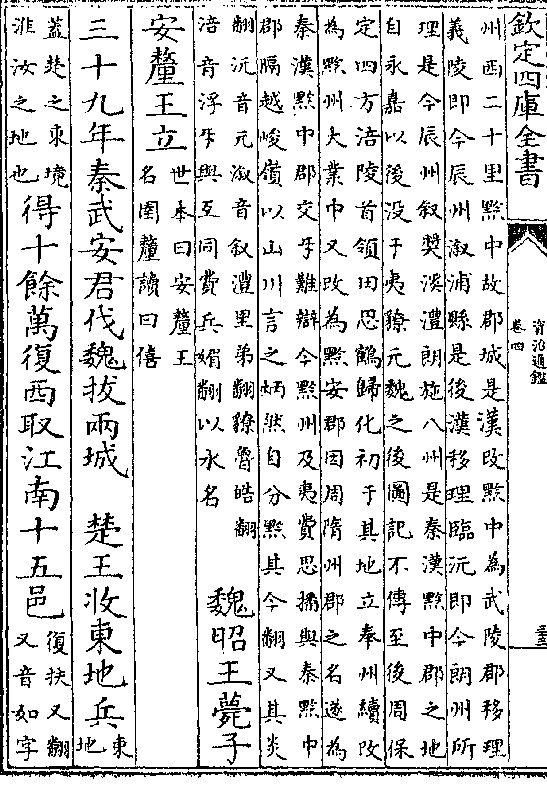 欽定四庫全書
資治通鑑
卷四
州西二十里黔中故郡城是漢改黔中為武陵郡移理
義陵即今辰州溆浦縣是後漢移理臨沅即今朗州所
理是今辰州叙奬溪澧朗施八州是秦漢黔中郡之地
自永嘉以後没于夷獠元魏之後圖記不傳至後周保
定四方涪陵首領田思鶴歸化初于其地立奉州續改
為黔州大業中又改為黔安郡因周隋州郡之名遂為
秦漢黔中郡交牙難辯今黔州及夷費思播與秦黔中
郡隔越峻嶺以山川言之炳然自分黔其今翻又其炎
翻沅音元溆音叙澧里弟翻獠魯皓翻
涪音浮牙與互同費兵媚翻以水名
魏昭王薨子
安釐王立
世本曰安釐王
名圉釐讀曰僖
三十九年秦武安君伐魏拔兩城　楚王收東地兵
東
地
蓋楚之東境
淮汝之地也
得十餘萬復西取江南十五邑
復扶又翻
又音如字